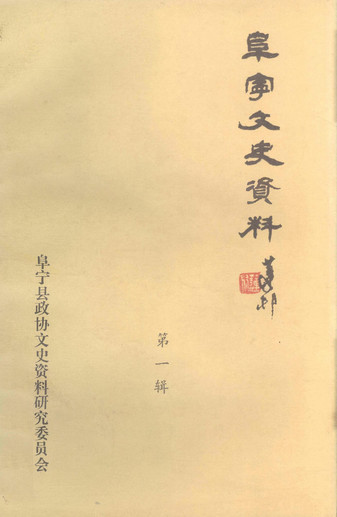 阜宁文史資料
第一辑
阜宁县政协文史资料研究委员会